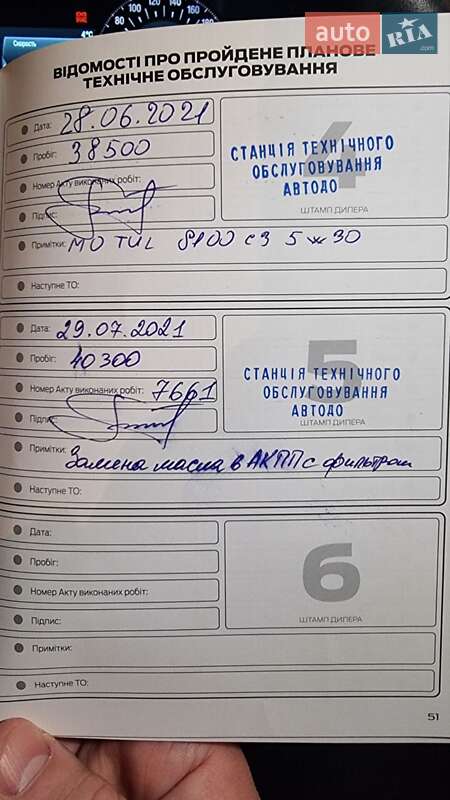 Скорость
80 100 120 140 160 180
4°C
auto RIA.com
ВІДОМОСТІ ПРО ПРОЙДЕНЕ ПЛАНОВЕ
ТЕХНІЧНЕ ОБСЛУГОВУВАННЯ
Дата: 28.06.2021
Пробіг: 38500
Номер Акту виконаних робіт:
Підпис:
4
СТАНЦІЯ ТЕХНІЧНОГО
ОБСЛУГОВУВАННЯ
АВТОДО
ШТАМП ДИЛЕРА
Примітки: MOTUL 8100 c3 5ж30
Наступне ТО:
Дата: 29.07.2021
Пробіг: 40300
Номер Акту виконаних робіт:
Підпис:
5
СТАНЦІЯ ТЕХНІЧНОГО
ОБСЛУГОВУВАННЯ
АВТОДО
ШТАМП ДИЛЕРА
Примітки: Замена масла в АКПП с фильтром
Наступне ТО:
Дата:
Пробіг:
Номер Акту виконаних робіт:
Підпис:
6
ШТАМП ДИЛЕРА
Примітки:
Наступне ТО:
51